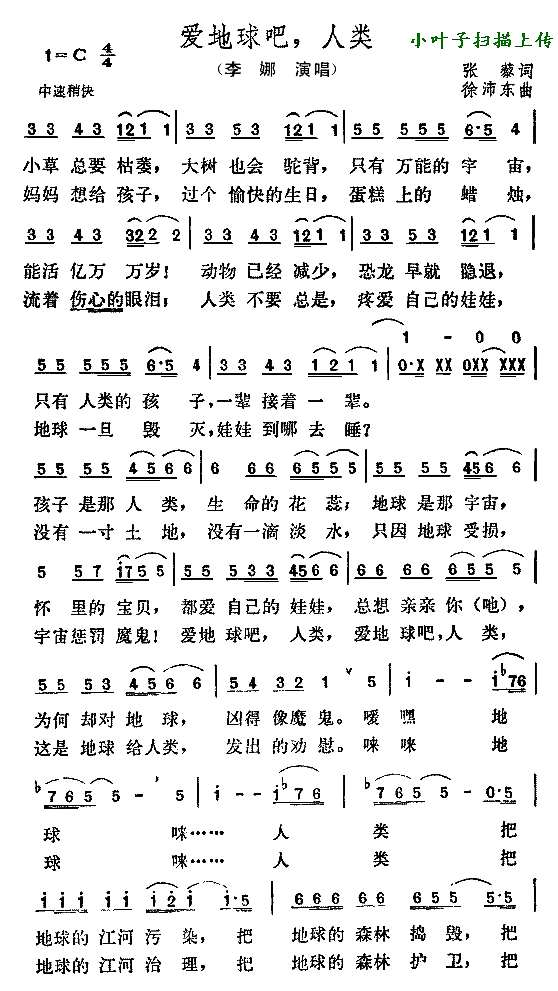 爱地球吧，人类
小叶子扫描上传
1=C 4/4
（李娜 演唱）
张藜词
中速稍快
徐沛东曲
3 3 4 3 121 1 | 3 3 5 3 121 1 | 5 5 5 5 5 6·5 4
小草 总要 枯萎， 大树 也会 驼背， 只有 万能的 宇 宙，
妈妈 想给 孩子， 过个 愉快的 生日， 蛋糕 上的 蜡 烛，
3 3 4 3 322 2 | 3 3 4 3 121 1 | 3 3 5 3 121 1
能活 亿万 万岁！ 动物 已经 减少， 恐龙 早就 隐退，
流着 伤心的 眼泪； 人类 不要 总是， 疼爱 自己的 娃娃，
1 - 0 0
5 5 5 5 5 6·5 4 | 3 3 4 3 1 2 1 1 | 0·X XX 0X XXX
只有 人类的 孩 子，一辈 接着 一 辈。
地球 一旦 毁 灭，娃娃 到哪 去 睡？
5 5 5 5 5 4 5 6 6 | 6 6 6 6 6 5 5 5 | 5 5 5 5 5 456 6
孩子 是那 人 类， 生 命的 花 蕊； 地球 是那 宇宙，
没有 一寸 土 地， 没有 一滴 淡 水， 只因 地球 受损，
5 5 7 i75 5 | 5 5 5 3 3 456 6 | 6 6 6 6 6 5 5 5
怀 里的 宝贝， 都爱 自己的 娃娃， 总想 亲亲 你（吔），
宇宙 惩罚 魔鬼！ 爱地 球吧， 人类， 爱地 球吧，人 类，
5 5 5 3 4 5 6 6 | 5 4 3 2 1 5 | i · - i♭76
为何 却对 地 球， 凶得 像魔 鬼。 嗳 嘿 地
这是 地球 给人类， 发出 的劝 慰。 咪 咪 地
♭7 6 5 5 - 5 | i - i ♭7 6 | ♭7 6 5 5 - 0·5
球 咪…… 人 类 把
球 咪…… 人 类 把
i i i i i i 2 i i·5 | 6 6 6 6 6 6 5 5 5·5
地球的 江河 污 染， 把 地球的 森林 捣 毁，把
地球的 江河 治 理， 把 地球的 森林 护 卫，把